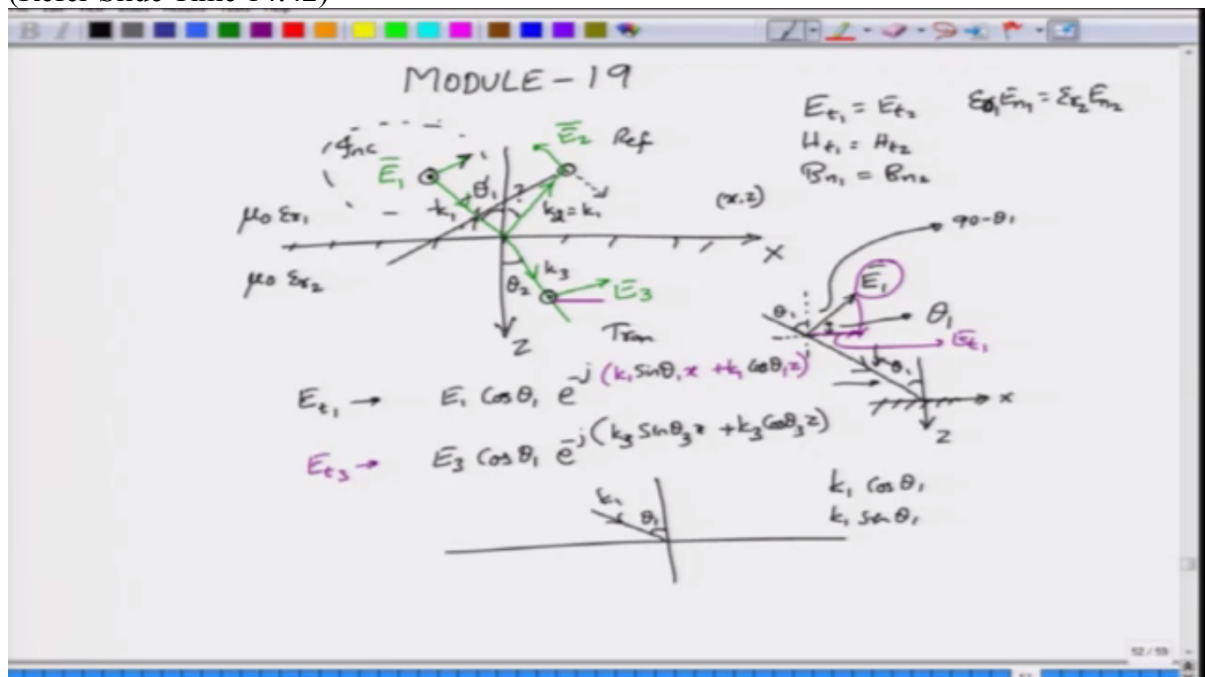 MODULE-19
E̅t1 = E̅t2 εr1E̅n1 = εr2E̅n2
Ht1 = Ht2
Bn1 = Bn2
Inc
E̅1
E̅2 Ref
θ1 ?
k1
k2=k1
(x,z)
μ0 εr1
X
μ0 εr2
θ2
k3
E̅3
Z
Tran
90-θ1
E̅1
θ1
θ1
E̅t1
k
θ1
x
z
Et1 → E1 cosθ1 e^-j(k1 sinθ1x + k1 cosθ1z)
Et3 → E3 cosθ1 e^-j(k3 sinθ3x + k3 cosθ3z)
k1
θ1
k1 cosθ1
k1 sinθ1
52 / 59